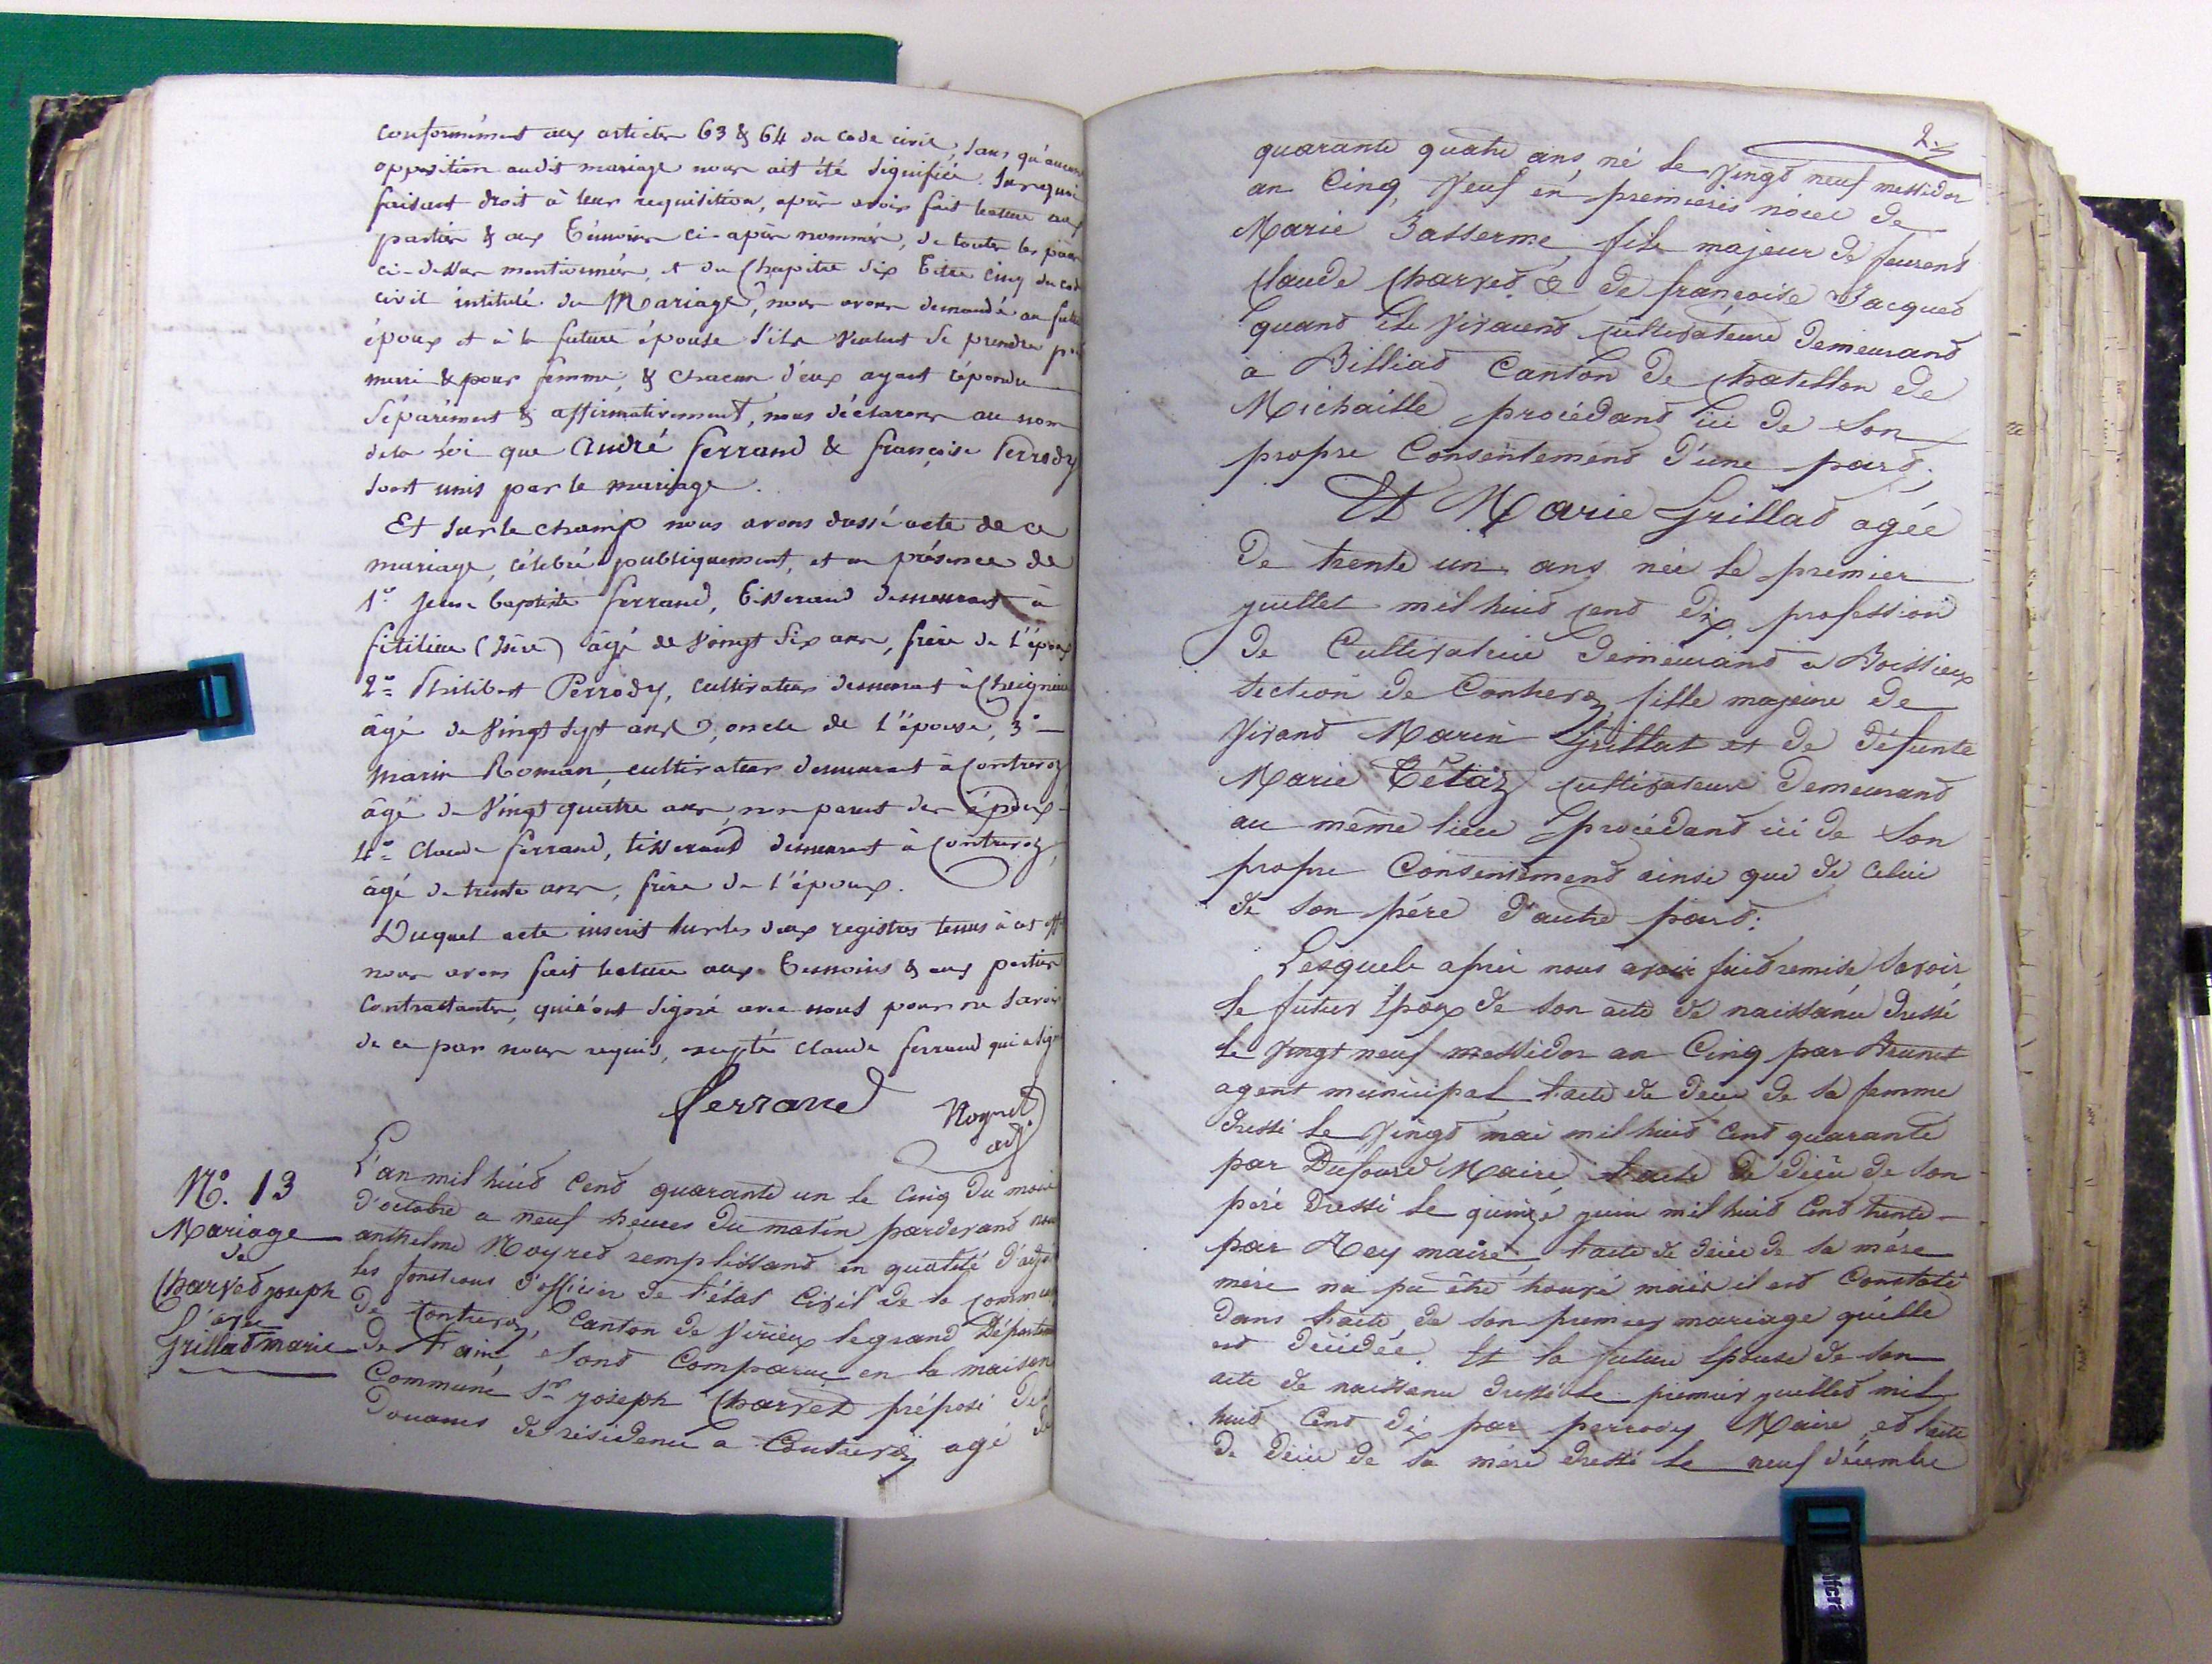 conformément aux articles 63 & 64 du code civil, sans qu'aucune
opposition audit mariage nous ait été signifiée. Sur quoi
faisant droit à leur requisition, après avoir fait lecture aux
parties & aux témoins ci-après nommés, de toutes les pièces
ci-dessus mentionnées, et du Chapitre six titre cinq du code
civil intitulé du Mariage, nous avons demandé au futur
époux et à la future épouse s'ils veulent se prendre pour
mari & pour femme, & chacun d'eux ayant répondu
séparément & affirmativement, nous déclarons au nom
de la Loi que André ferrand & françoise Perrody
sont unis par le mariage.
Et sur le champ nous avons dressé acte de ce
mariage, célébré publiquement, et en présence de
1º Jean baptiste ferrand, tisserand demeurant à
fitilieu (Isère) âgé de vingt six ans, frère de l'époux
2º Philibert Perrody, cultivateur demeurant à Cheignieu
âgé de vingt sept ans, oncle de l'épouse, 3º
Marin Roman, cultivateur demeurant à Contrevoz
âgé de vingt quatre ans, non parent des époux
4º Claude ferrand, tisserand demeurant à Contrevoz,
âgé de trente ans, frère de l'époux.
Duquel acte inscrit sur les deux registres tenus à cet effet
nous avons fait lecture aux témoins & aux parties
contractantes, qui n'ont signé avec nous pour ne savoir
de ce par nous requis, excepté Claude ferrand qui a signé
ferrand
Noyret
adj
Nº. 13
Mariage
de
Charvet joseph
avec
Grillad marie
L'an mil huid cend quarante un le cinq du mois
d'octobre a neuf heures du matin pardevand nous
anthelme Noyred remplissand en qualité d'adjoint
les fonctions d'officier de l'état civil de la commune
de Contrevoz, Canton de Virieux legrand Département
de l'ain, sond comparus en la maison
commune Sr joseph Charvet préposé des
Douanes de résidence a Contrevoz agé de
2.
quarante quatre ans, né le vingt neuf messidor
an cinq, veuf en premieres noces de
Marie Basserme, fils majeur de feurend
Claude Charved & de françoise Jacqued
quand ils vivaiend cultivateurs demeurand
a Billiad Canton de chatillon de
Michaille procédand ici de son
propre consentemend d'une pard;
Et Marie Grillad agée
de trente un ans née le premier
juillet mil huid cend dix profession
de Cultivatrice demeurand a Boissieux
section de Contrevoz, fille majeure de
vivand Marin Grillat et de défunte
Marie Tétaz cultivateurs demeurand
au même lieu procédand ici de son
propre consentemend ainsi que de celui
de son père d'autre pard:
Lesquels après nous avoir faid remise savoir
le futur Epoux de son acte de naissance dressé
le vingt neuf messidor an cinq par Brunet
agent municipal l'acte de décès de sa femme
dressé le vingd mai mil huid cend quarante
par Dufourd Maire l'acte de décès de son
père dressé le quinze juin mil huid cend trente
par Rey maire, l'acte de décès de sa mère
mère na pu être trouvé mais il est Constaté
dans l'acte de son premier mariage qu'elle
est décédée. Et la future Epouse de son
acte de naissance dressé le premier juilled mil
huid cend dix par perrody Maire, et l'acte
de décès de sa mère dressé le neuf décembre